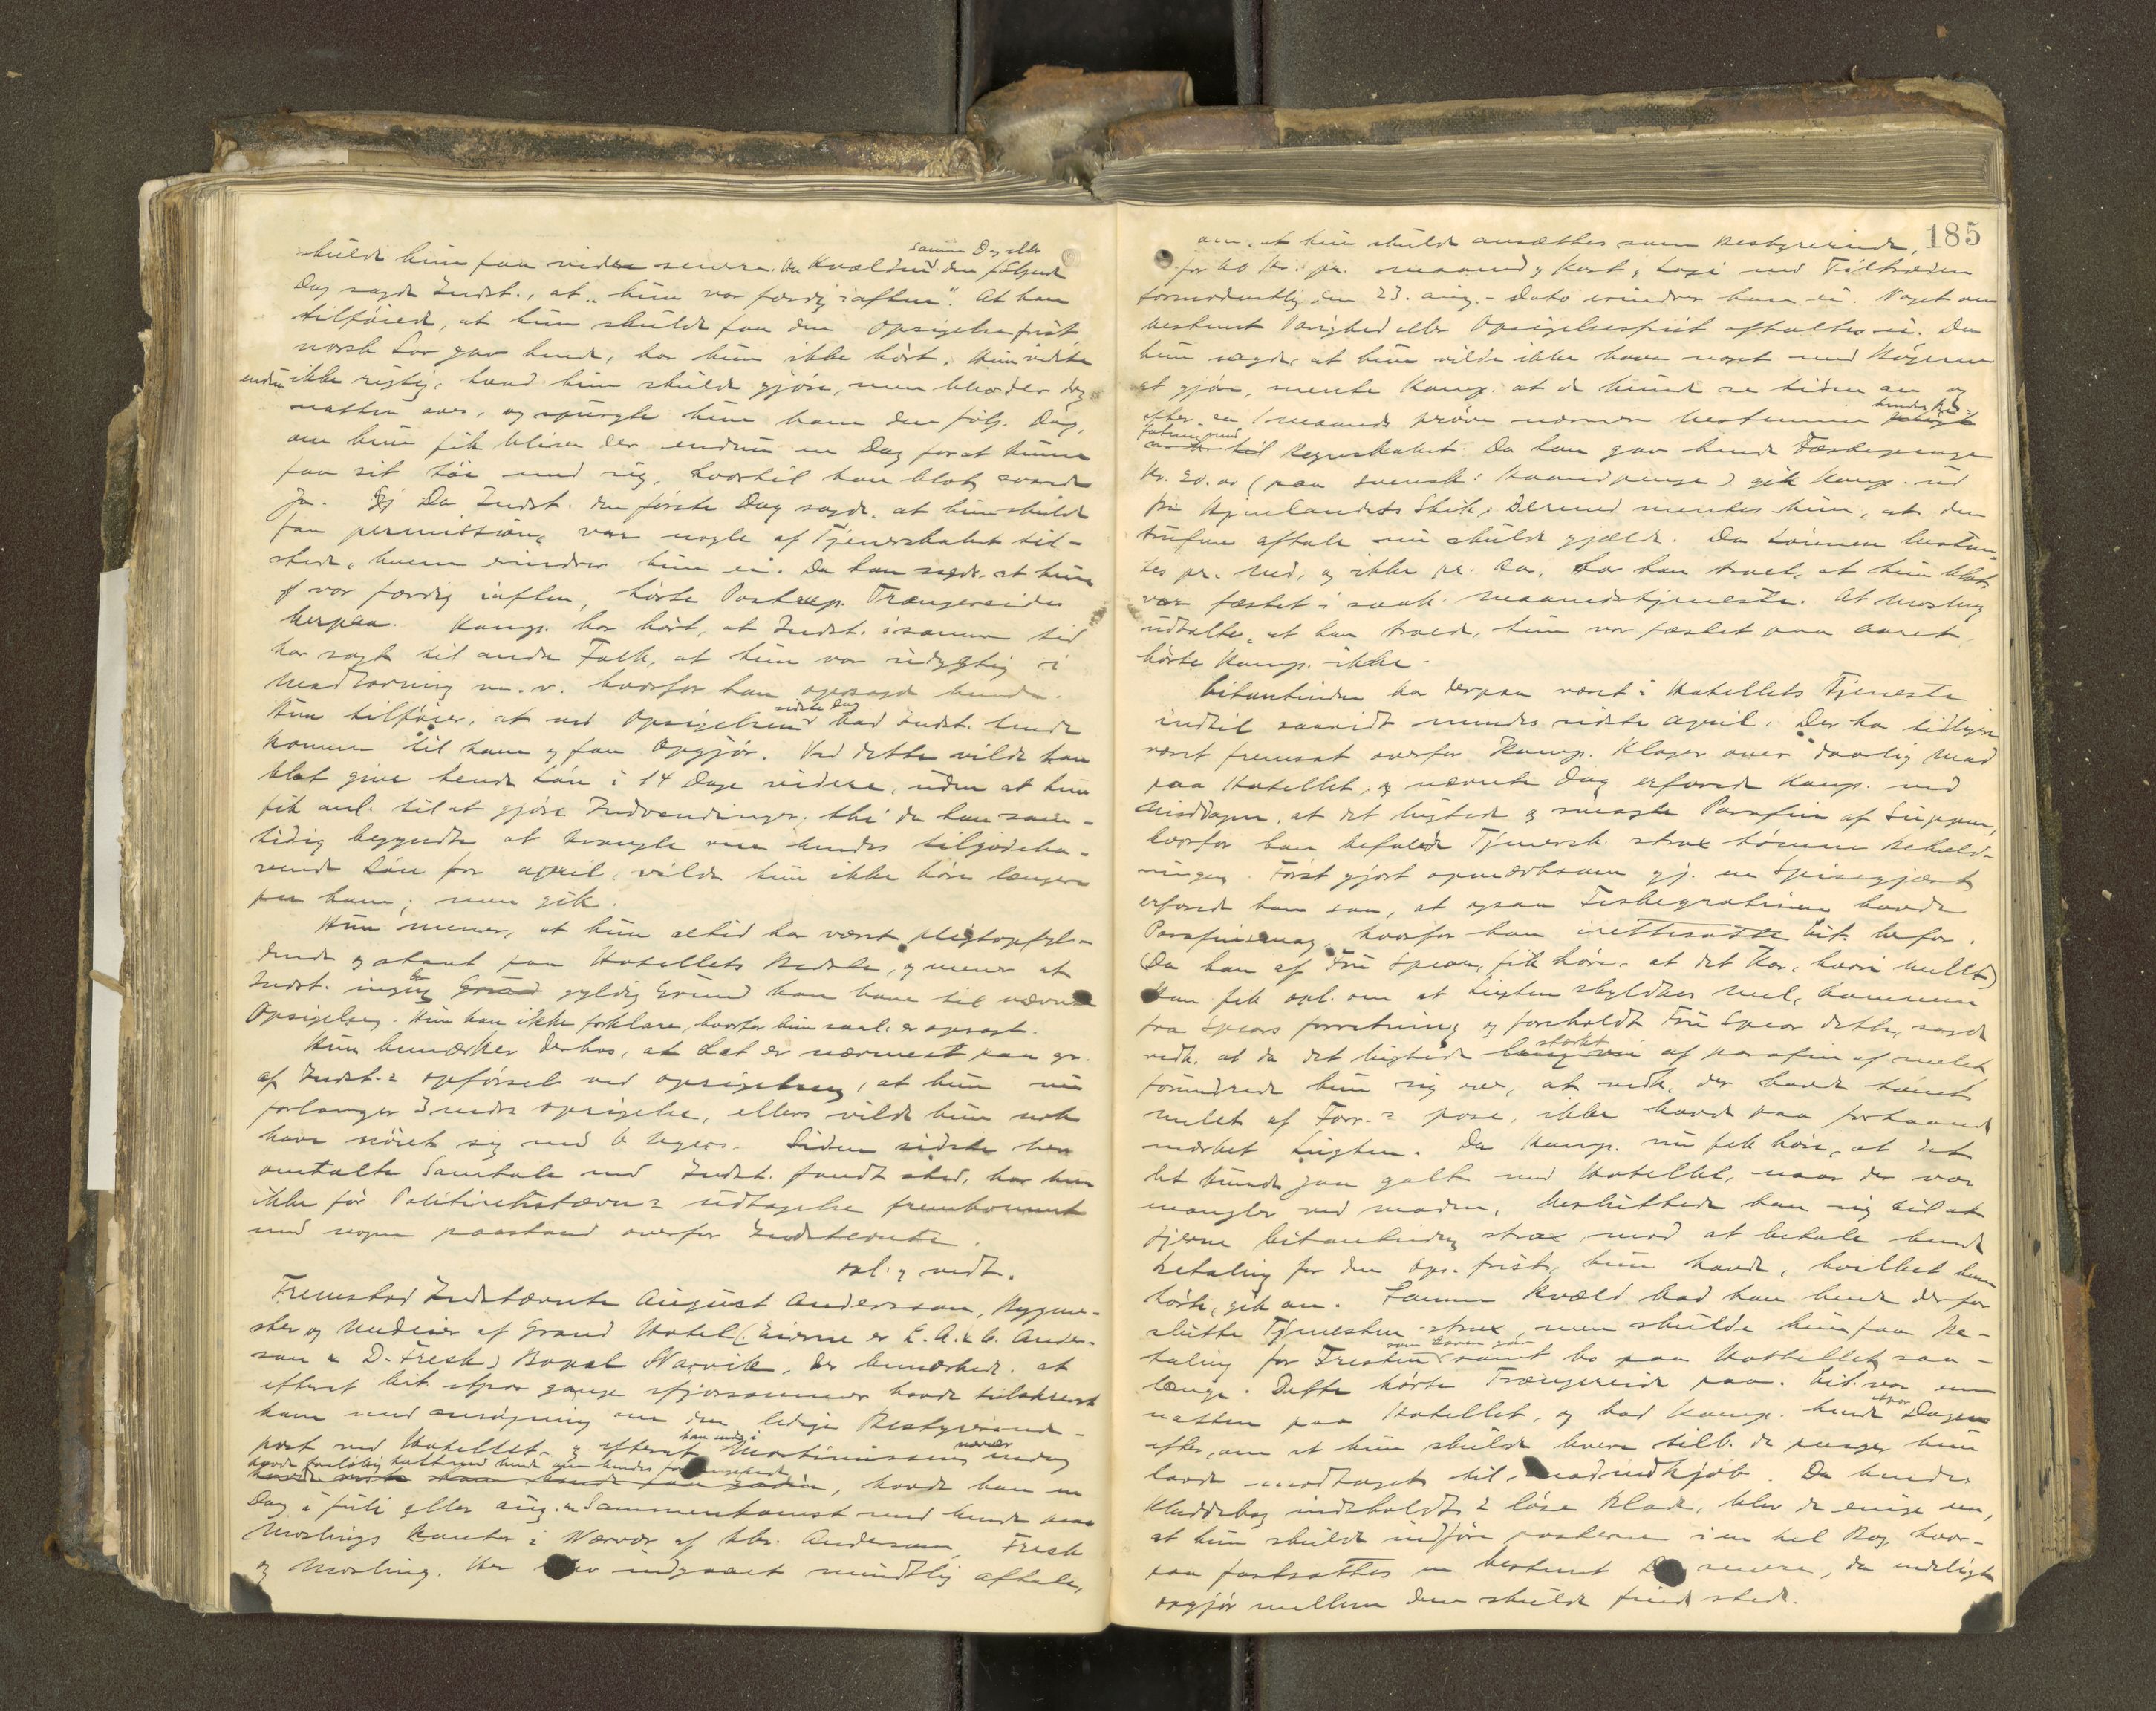 skulde hun faa vide senere. Om Kvælden samme Dag eller den følgende
Dag sagde Indst., at „hun var færdig iaften". At han
tilføiede, at hun skulde faa den Opsigelsesfrist,
norsk Lov gav hende, har hun ikke hørt. Hun vidste
endnu ikke rigtig, hvad hun skulde gjøre, men blev der dog
natten over, og spurgte hun ham den følg. Dag,
om hun fik blive der endnu en Dag for at kunne
faa sit Tøi med sig, hvortil han blot svarede
Ja. Da Indst. den første Dag sagde, at hun skulde
faa permission, var nogle af Tjenerskabet til-
stede, hvem erindrer hun ei. Da han sagde, at hun
var færdig iaften, hørte Trængereide
herpaa. Komp. har hørt, at Indst. i samme tid
har sagt til andre Folk, at hun var udygtig i
Madlavning m.v. hvorfor han opsagde hende.
Hun tilføier, at ved Opsigelsen sidste Dag bad Indst. hende
komme til ham og faa Opgjør. Ved dette vilde han
blot give hende Løn i 14 Dage videre, uden at hun
fik anl. til at gjøre Indvendinger; thi da han sam-
tidig begyndte at krangle om hendes tilgodeha-
vende Løn for april, vilde hun ikke høre længere
paa ham; men gik.
Hun mener, at hun altid har været pligtopfyl-
dende og aktet paa Hotellets Bedste, og mener at
Indst. ingen gyldig Grund kan have til nævnte
Opsigelse. Hun kan ikke forklare, hvorfor hun saal. er opsagt.
Hun bemærker derhos, at det er nærmest paa gr.
af Indst.s opførsel ved opsigelsen, at hun nu
forlanger 3 mdrs opsigelse, ellers vilde hun nok
have nøiet sig med 6 Ugers. Siden sidste her
omtalte Samtale med Indst. fandt sted, har hun
ikke før Politiretsstævn.s udtagelse fremkommet
med nogen paastand overfor Indstevnte.
opl. og vedt.
Fremstod Indstævnte August Andersson, Bygme-
ster og Medeier af Grand Hotel (Eierne er L. A. & C. Anders-
son & D. Fresk) Bopæl Narvik. Der bemærkede, at
efterat Cit. et par gange ifjorsommer havde tilskrevet
ham med ansøgning om den ledige Bestyrerinde-
post ved Hotellet, og efterat han i Mortinussens nærvær
havde foreløbig talt med hende om hendes
, havde han en
Dag i juli eller aug. Sammenkomst med hende paa
Moslings Kontor i Nærvær af hhr. Andersson, Fresk
og Mosling. Her blev indgaaet mundtlig aftale,
185
om, at hun skulde ansættes som Bestyrerinde,
for 60 Kr. pr. maaned og Kost og Logi med Tiltræden
formodentlig den 23. aug. - Dato erindrer han ei. Noget om
bestemt Varighed eller Opsigelsesfrist aftaltes ei. Da
hun sagde, at hun vilde ikke have noget med Bøgerne
at gjøre, mente Komp. at de kunde se tiden an og
efter en 1 maaneds prøve nærmere bestemme hendes
til Regnskabet. Da han gav hende Fæstepenge
Kr. 20.00 (paa svensk: Haandpenge) gik Komp. ud
fra Hjemlandets Skik; dermed mentes kun, at den
trufne aftale nu skulde gjælde. Da Lønnen bestem-
tes pr. Md., og ikke pr. Aar, har han troet, at hun blot
var fæstet i saak. Maanedstjeneste. At Mosling
udtalte, at han troede, hun var fæstet paa Aaret,
hørte Komp. ikke.
Citantinden har derpaa været i Hotellets Tjeneste
indtil saavidt mindes sidste april. Der har tidligere
været fremsat overfor Komp. Klager over daarlig Mad
paa Hotellet, og nævnte Dag erfarede Komp. ved
Middagen, at det lugtede og smagte Parafin af Suppen,
hvorfor han befalede Tjenersk. strax tømme Behold-
ningen. Først gjort opmærksom gj. en Spisegjæst
erfarede han saa, at ogsaa Fiskegratinen havde
Parafinsmag, hvorfor han irettesatte Cit. herfor.
(Da han af Fru Spean, fik høre, at det Kar, hvori mellet)
Han fik opl. om at Lugten skyldtes Mel, kommen
fra Speans forretning og foreholdt Fru Spean dette, sagde
vedk. at da det lugtede stærkt af parafin af melet
forundrede hun sig over, at vedk. der havde tømt
melet af Forr.s pose, ikke havde paa forhaand
mærket Lugten. Da Komp. nu fik høre, at det
let kunde gaa galt med Hotellet, naar der var
mangler ved maden, besluttede han sig til at
fjerne Citantinden strax mod at betale hende
Betaling for den Ops. frist, hun havde, hvilket han
hørte, gik an. Samme Kvæld bad han hende derfor
slutte Tjenesten strax, men skulde hun faa Be-
taling for Fristen som Loven gav samt bo paa Hotellet saa-
længe. Dette hørte Trængereid paa. Cit. var om
natten paa Hotellet, og bad Komp. hende Dagen
efter, om at hun skulde levere tilb. de penge, hun
havde modtaget til Madindkjøb. Da hendes
Kladdebog indeholdt 2 løse Blade, blev de enige om,
at hun skulde indføre posterne i en hel Bog, hvor-
paa fastsattes en bestemt Dag senere, da endeligt
opgjør mellem dem skulde finde sted.